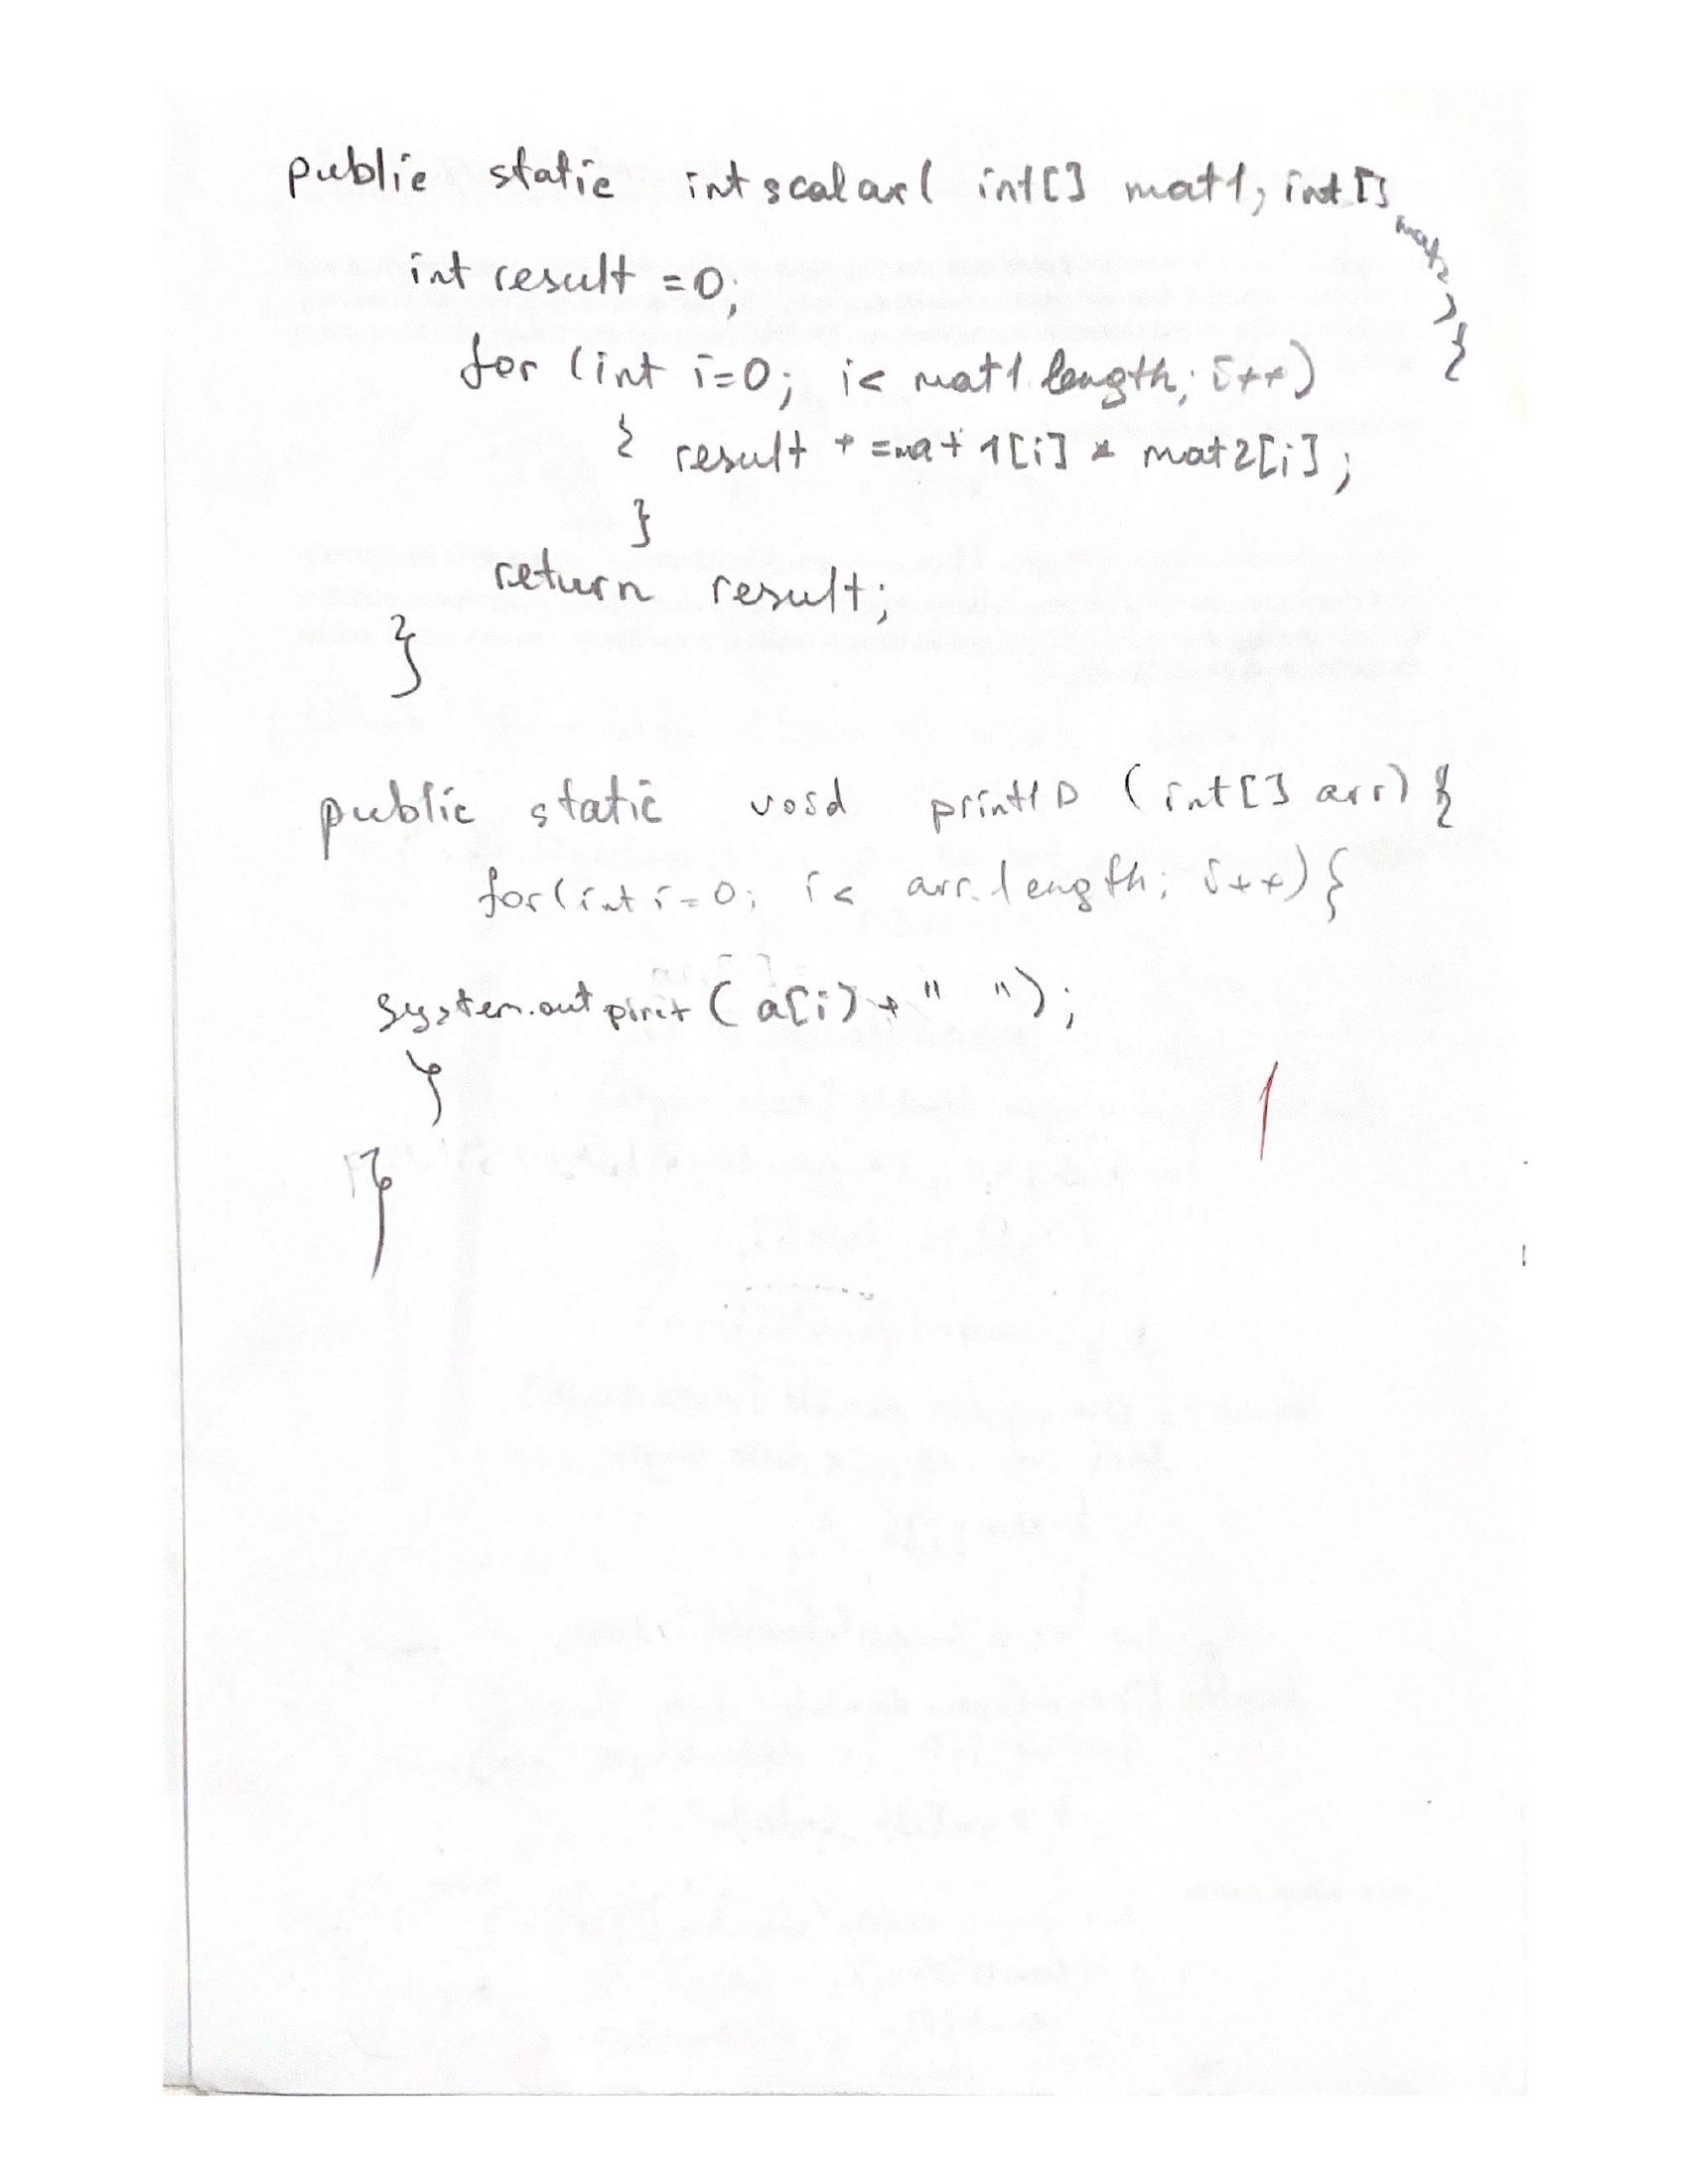 public static int scalar( int[] mat1, int[] mat2) {
int result =0;
for (int i=0; i< mat1.length; i++)
{ result +=mat1[i] * mat2[i];
}
return result;
}
public static void print1D (int[] arr) {
for(int i=0; i< arr.length; i++){
system.out pirit (a[i)+" ");
}
}